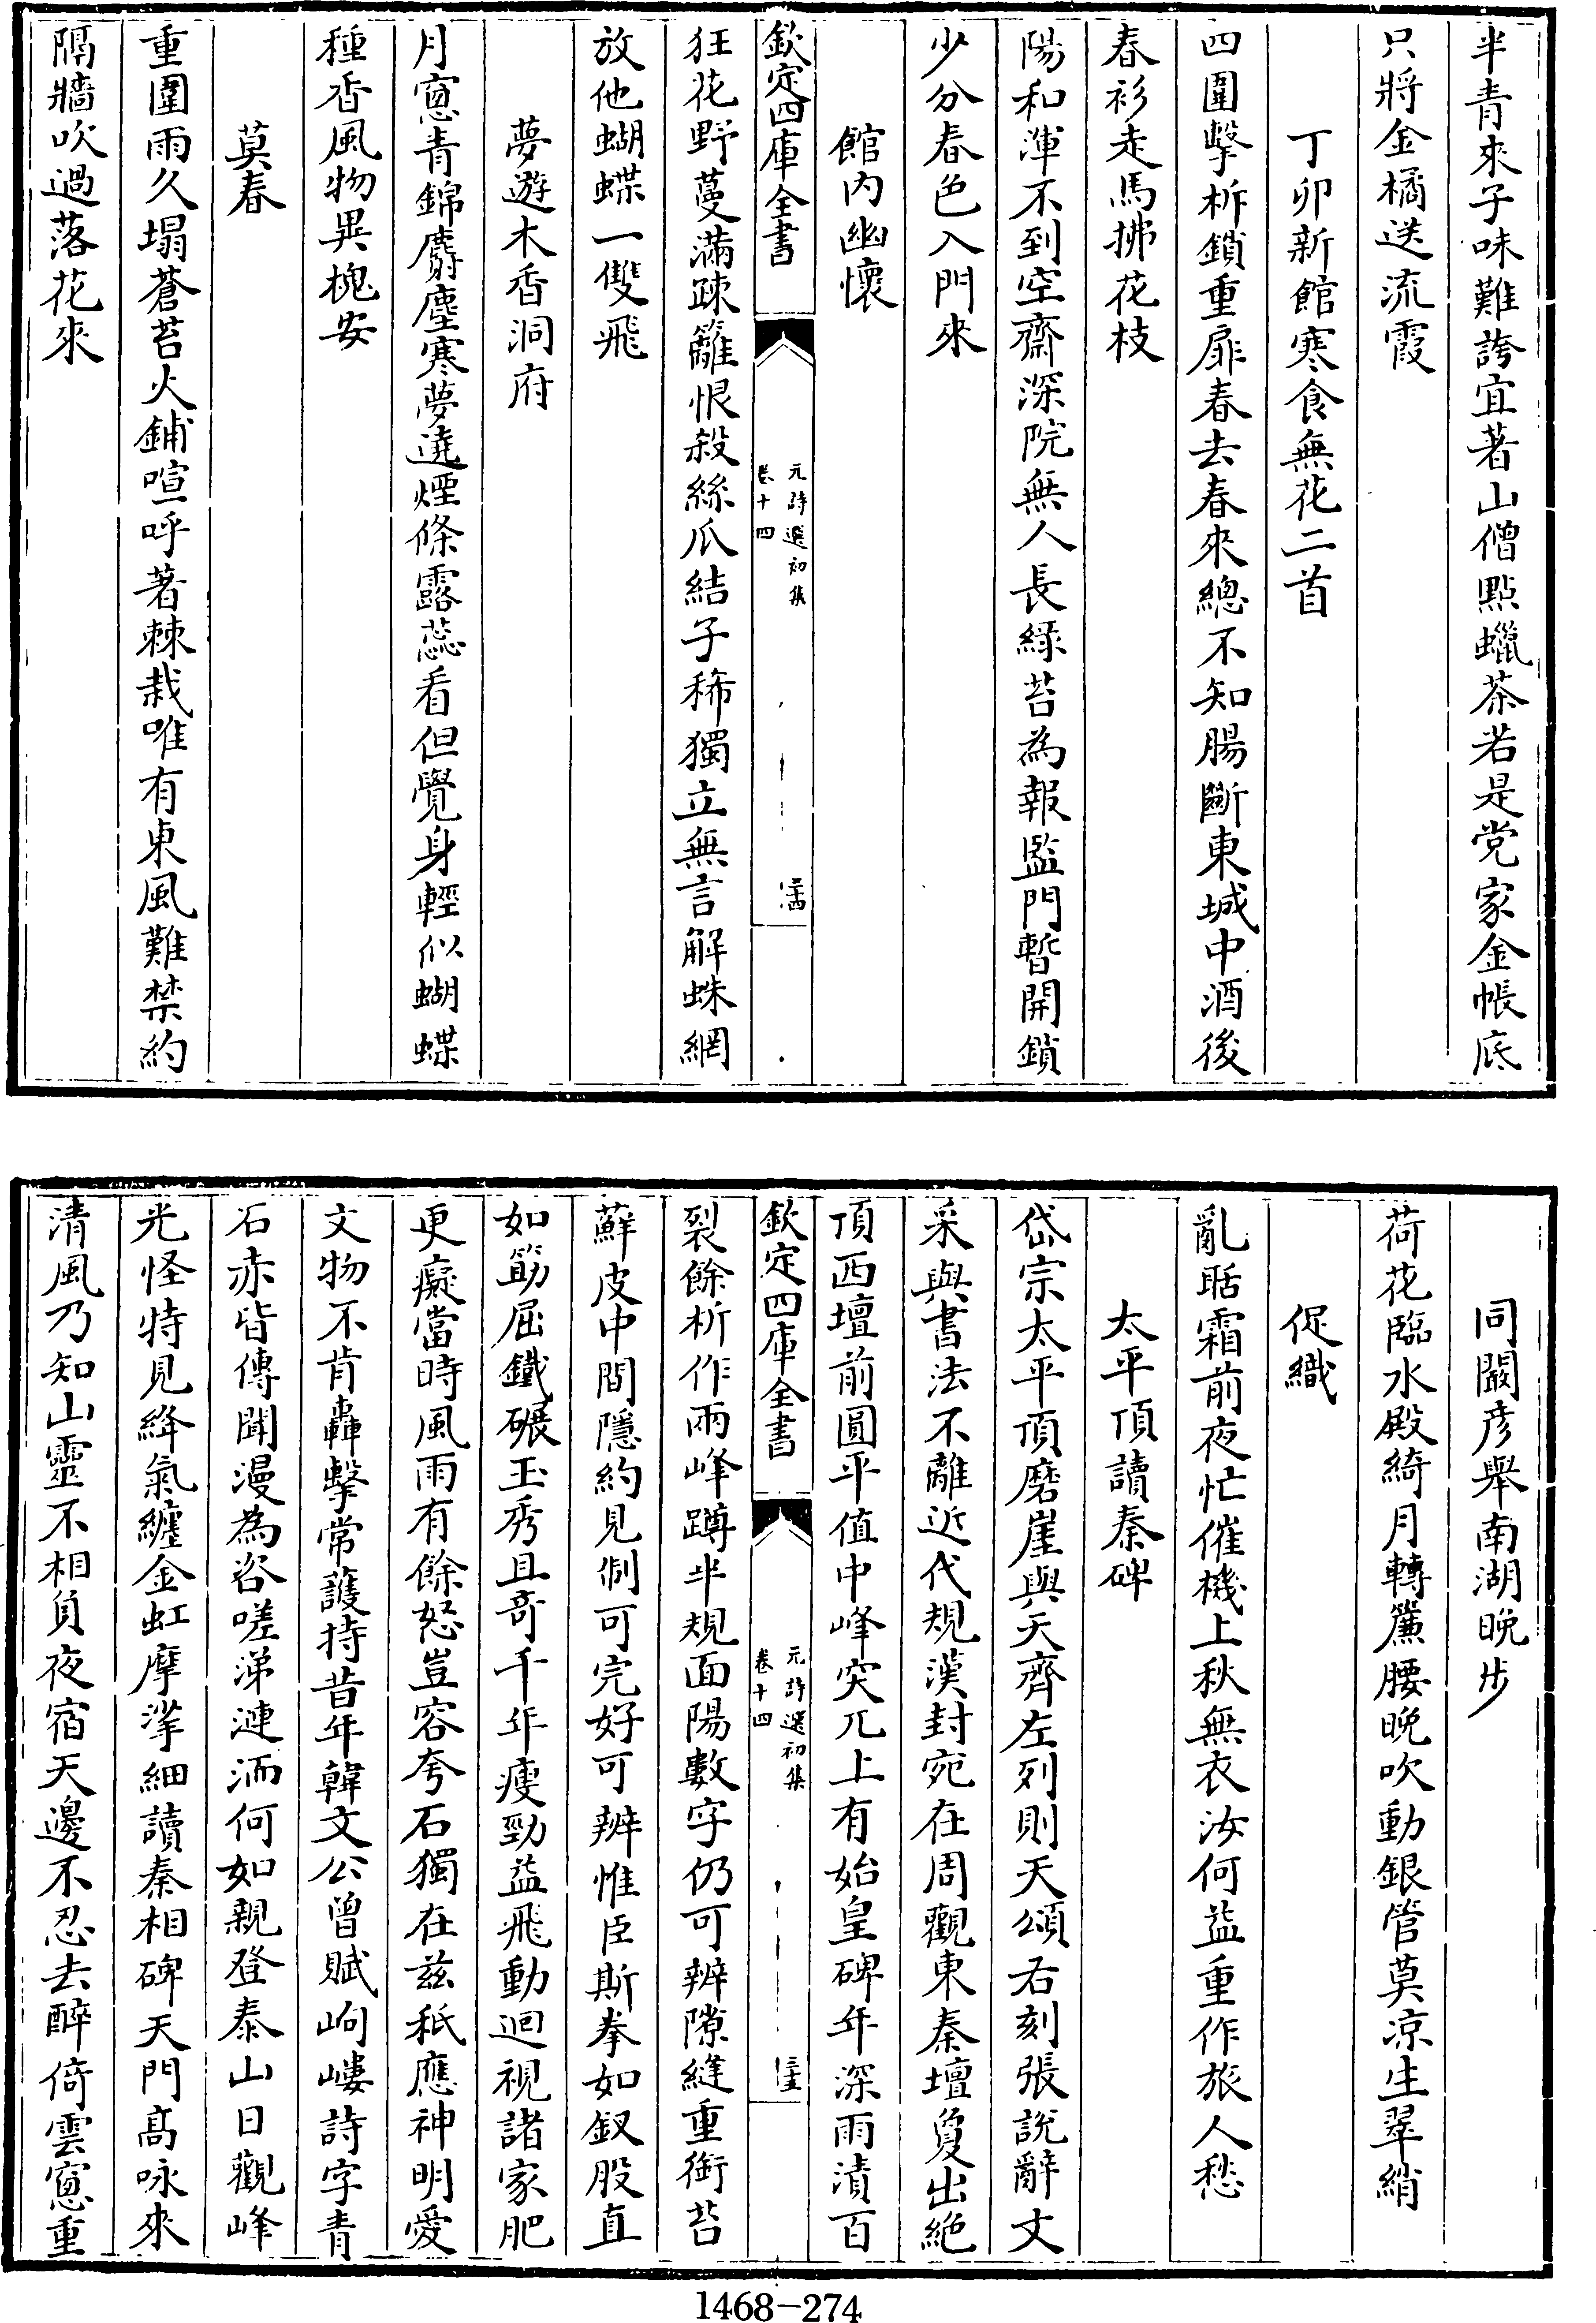 半青來子味難誇宜著山僧㸃蠟茶若是党家金帳底
只將金橘送流霞
丁卯新館寒食無花二首
四圍擊柝鎖重扉春去春來總不知腸斷東城中酒後
春衫走馬拂花枝
陽和渾不到空齋深院無人長緑苔為報監門暫開鎖
少分春色入門來
館内幽懷
欽定四庫全書
元詩選初集
卷十四
狂花野蔓滿疎籬恨殺絲瓜結子稀獨立無言解蛛網
放他蝴蝶一雙飛
夢遊木香洞府
月窗青錦麝塵寒夢遶煙條露蕊看但覺身輕似蝴蝶
種香風物異槐安
莫春
重圍雨久塌蒼苔火鋪喧呼著棘栽唯有東風難禁約
隔牆吹過落花來
同閻彦舉南湖晚步
荷花臨水殿綺月轉簾腰晚吹動銀管莫凉生翠綃
促織
亂聒霜前夜忙催機上秋無衣汝何益重作旅人愁
太平頂讀秦碑
岱宗太平頂磨崖與天齊左列則天頌右刻張說辭文
采與書法不離近代規漢封宛在周觀東秦壇夐出絶
頂西壇前圓平值中峰突兀上有始皇碑年深雨漬百
欽定四庫全書
元詩選初集
卷十四
裂餘析作兩峰蹲半規面陽數字仍可辨隙縫重銜苔
蘚皮中間隱約見制可完好可辨惟臣斯拳如釵股直
如筯屈鐵碾玉秀且奇千年瘦勁益飛動迴視諸家肥
更癡當時風雨有餘怒豈容夸石獨在兹秖應神明愛
文物不肯轟擊常護持昔年韓文公曾賦岣嶁詩字青
石赤皆傳聞漫為咨嗟涕漣洏何如親登泰山日觀峰
光怪特見絳氣纏金虹摩挲細讀秦相碑天門髙咏來
清風乃知山靈不相負夜宿天邊不忍去醉倚雲窗重
1468-274